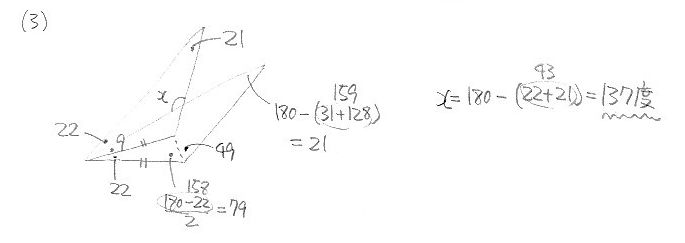 (3)
21
x
159
180-(31+128)
=21
22
9
49
22
158
180-22
2
=79
43
x=180-(22+21)=137度